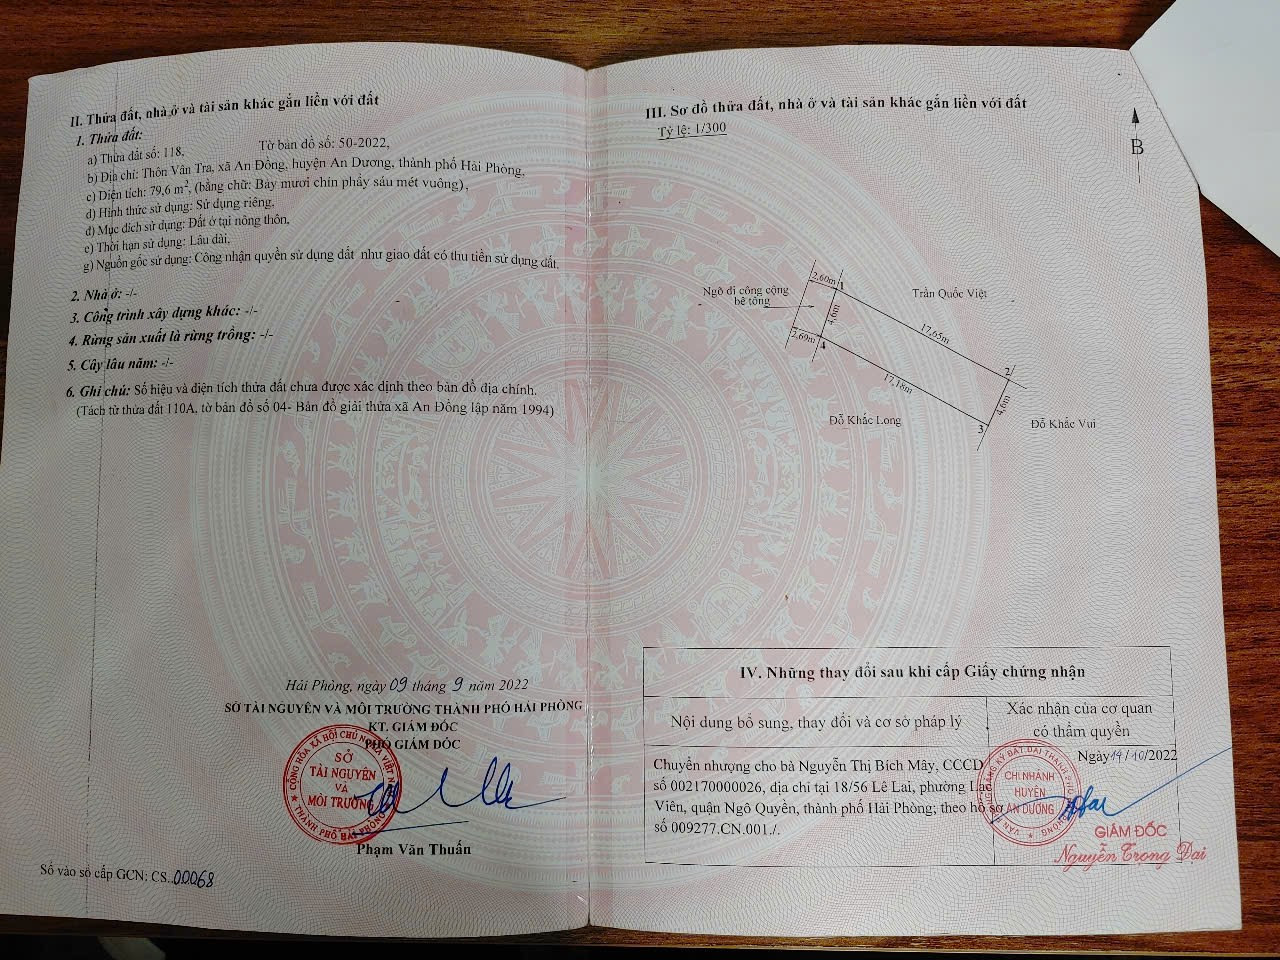 II. Thửa đất, nhà ở và tài sản khác gắn liền với đất
1. Thửa đất:
a) Thửa đất số: 118, Tờ bản đồ số: 50-2022,
b) Địa chỉ: Thôn Vân Tra, xã An Đồng, huyện An Dương, thành phố Hải Phòng,
c) Diện tích: 79,6 m², (bằng chữ: Bảy mươi chín phẩy sáu mét vuông),
d) Hình thức sử dụng: Sử dụng riêng,
đ) Mục đích sử dụng: Đất ở tại nông thôn,
e) Thời hạn sử dụng: Lâu dài,
g) Nguồn gốc sử dụng: Công nhận quyền sử dụng đất như giao đất có thu tiền sử dụng đất.
2. Nhà ở: -/-
3. Công trình xây dựng khác: -/-
4. Rừng sản xuất là rừng trồng: -/-
5. Cây lâu năm: -/-
6. Ghi chú: Số hiệu và diện tích thửa đất chưa được xác định theo bản đồ địa chính.
(Tách từ thửa đất 110A, tờ bản đồ số 04- Bản đồ giải thửa xã An Đồng lập năm 1994)
Hải Phòng, ngày 09 tháng 9 năm 2022
SỞ TÀI NGUYÊN VÀ MÔI TRƯỜNG THÀNH PHỐ HẢI PHÒNG
KT. GIÁM ĐỐC
PHÓ GIÁM ĐỐC
CỘNG HÒA XÃ HỘI CHỦ NGHĨA VIỆT NAM
SỞ
TÀI NGUYÊN
VÀ
MÔI TRƯỜNG
THÀNH PHỐ HẢI PHÒNG
Phạm Văn Thuấn
Số vào sổ cấp GCN: CS. 00068
III. Sơ đồ thửa đất, nhà ở và tài sản khác gắn liền với đất
Tỷ lệ: 1/300
B
Ngõ đi công cộng
bê tông
2,60m
1
4,6m
2,60m
4
Trần Quốc Việt
17,65m
2
17,18m
4,6m
3
Đỗ Khắc Long
Đỗ Khắc Vui
IV. Những thay đổi sau khi cấp Giấy chứng nhận
Nội dung bổ sung, thay đổi và cơ sở pháp lý
Xác nhận của cơ quan
có thẩm quyền
Chuyển nhượng cho bà Nguyễn Thị Bích Mây, CCCD
số 002170000026, địa chỉ tại 18/56 Lê Lai, phường Lạc
Viên, quận Ngô Quyền, thành phố Hải Phòng; theo hồ sơ
số 009277.CN.001./.
Ngày 14/10/2022
VĂN PHÒNG ĐĂNG KÝ ĐẤT ĐAI THÀNH PHỐ HẢI PHÒNG
CHI NHÁNH
HUYỆN
AN DƯƠNG
GIÁM ĐỐC
Nguyễn Trọng Đại